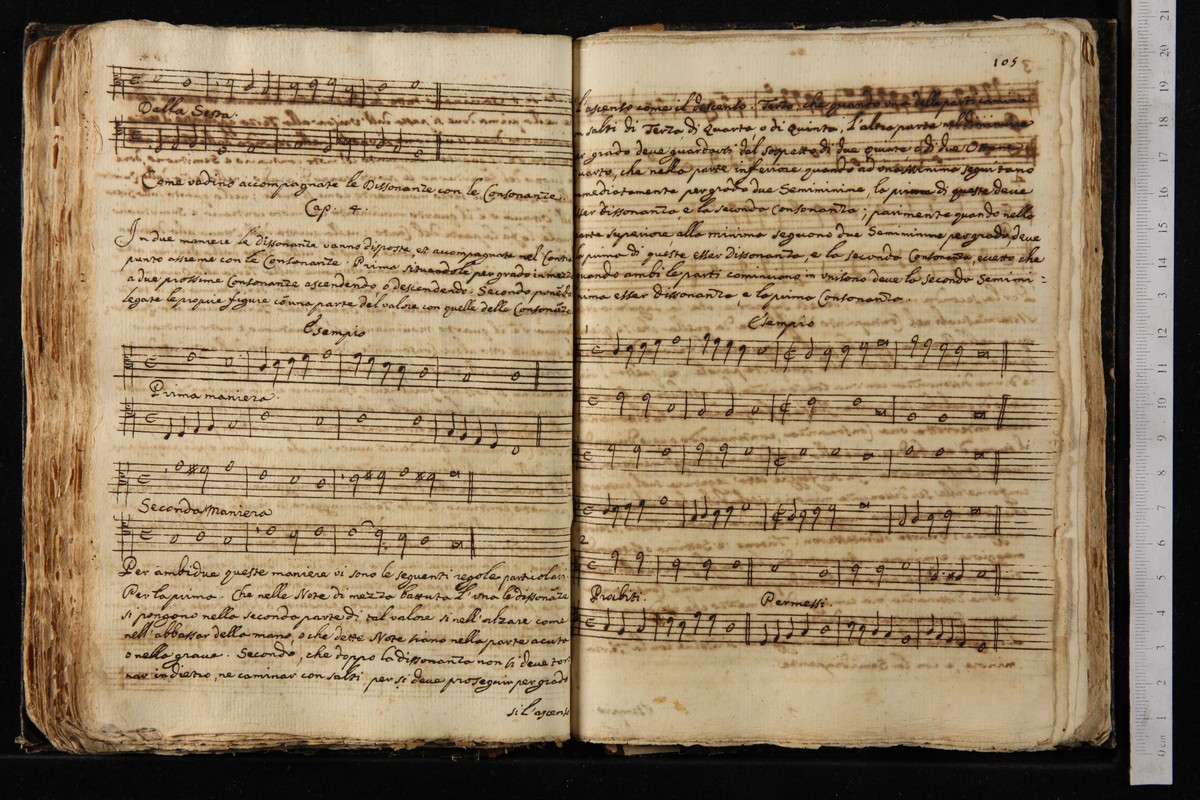 Dalla Sesta.
Come vadino accompagnate le Dissonanze con le Consonanze.
Cap. 4.
In due maniere le dissonanze vanno disposte, et accompagnate nel Contra
punto assieme con le Consonanze. Prima situandole per grado in mezzo
a due prossime Consonanze ascendendo o descendendo. Secondo ponendo
legate le proprie figure con una parte del valore con quelle delle Consonanze
Esempio
Prima maniera.
Seconda Maniera
Per ambidue queste maniere vi sono le seguenti regole particolari
Per la prima. Che nelle Note di mezza battuta l'una le dissonanze
si pongono nella seconda parte di tal valore si nell'alzare come
nell'abbassar della mano, o che dette Note siano nella parte acuta
o nella grave. Secondo, che doppo la dissonanza non si deve tor
nar indietro, ne caminar con salti per si deve proseguir per grado
si l'ascenso
105
l'ascento come il descento. Terzo, che quando una delle parti camina
salti di Terza di Quarta o di Quinta, l'altra parte
grado deve guardarsi dal sospetto di due Quinte e di due Ottave
uarto, che nella parte inferiore quando ad una Minima seguitano
mediatamente per grado due Semiminime, la prima di queste deve
sser Dissonanza e la seconda Consonanza; parimente quando nella
arte superiore alla minima seguono due Semiminime per grado, deve
a prima di queste esser Dissonanza, e la seconda Consonanza, ecetto che
uando ambi le parti cominciono in Unisono deve la seconda Semimi=
nima esser Dissonanza, e la prima Consonanza.
Esempio
1
2
Proibiti.
Permessi.